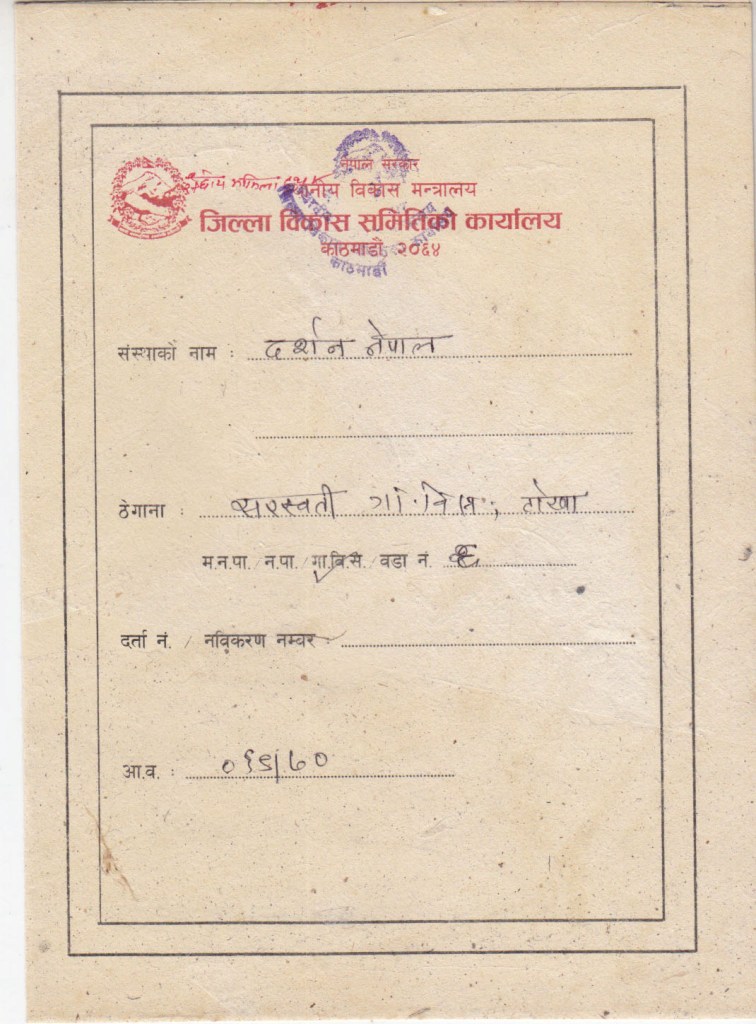 नेपाल सरकार
स्थानीय विकास मन्त्रालय
जिल्ला विकास समितिको कार्यालय
काठमाडौं, २०६४
काठमाडौं
संस्थाको नाम : दर्शन नेपाल
ठेगाना : सरस्वती गा.वि.स., टोखा
म.न.पा. / न.पा. / गा.वि.स. / वडा नं.
दर्ता नं. / नविकरण नम्बर :
आ.व. : ०६९/७०